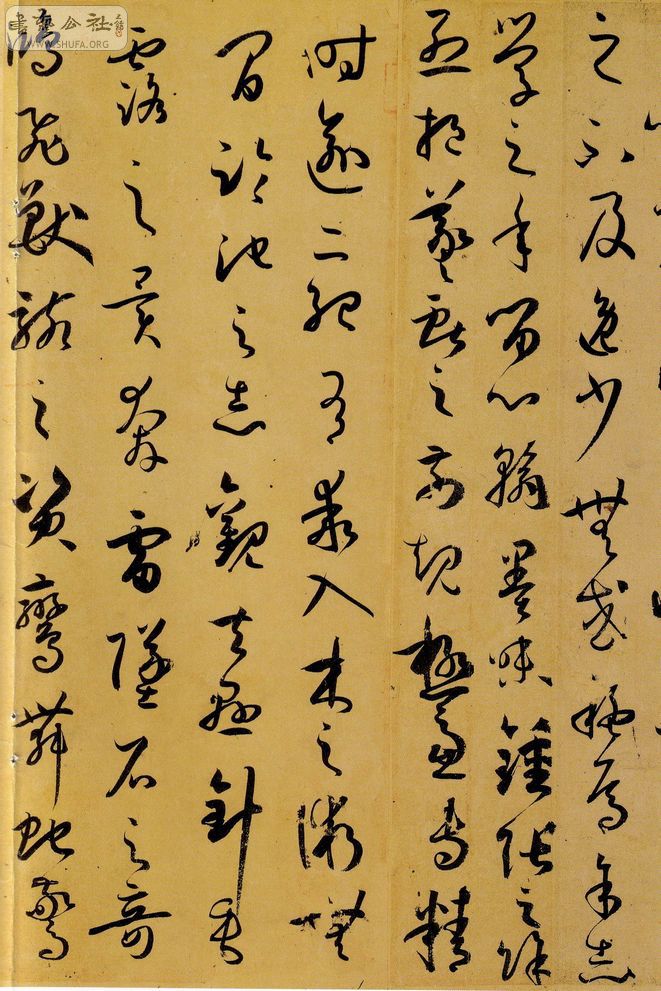 之不及逸少無或疑焉余志
學之年留心翰墨味鍾張之餘
烈挹羲獻之前規極慮專精
時逾二紀有乖入木之術無
間臨池之志觀夫懸針垂
露之異奔雷墜石之奇
鴻飛獸駭之資鸞舞蛇驚
書法公社
WWW.SHUFA.ORG